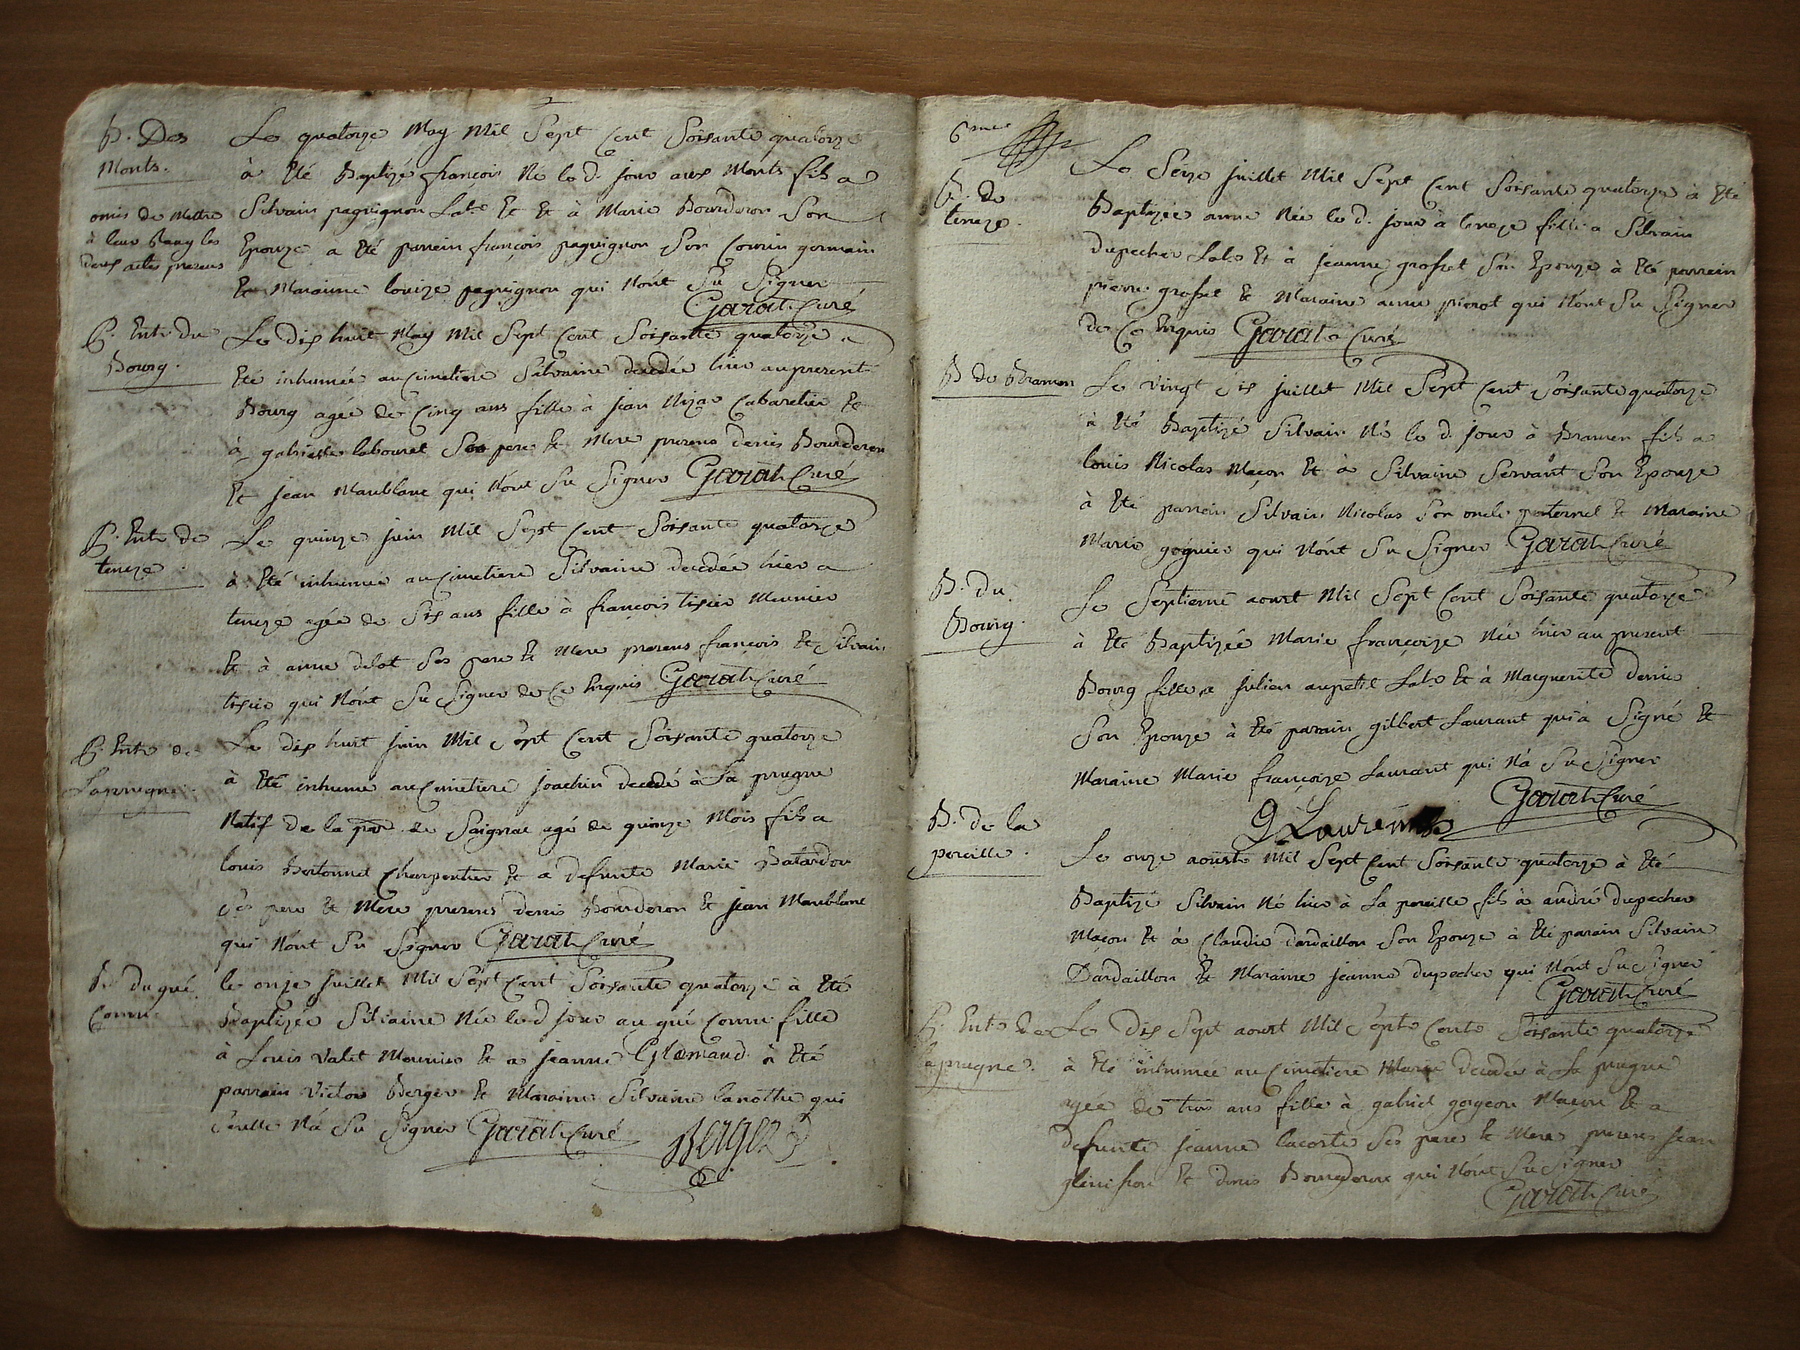 B. Des
Monts.
omis de mettre
à leur rang les
deux actes presens
Le quatorze May Mil Sept Cent Soisante quatorze
à Eté Baptizé françois Né le d. jour aux Monts fils a
Silvain paquignon Labr Et à Marie Bourderon Son
Epouze a Eté parrain françois paquignon Son Cousin germain
Et Maraine louize paquignon qui N'ont Su Signer
Garat Curé
Entr du
Bourg.
Le dis huit May Mil Sept Cent Soisante quatorze a
Eté inhumée au Cimetiere Silvaine decedée hier au present
Bourg agée de Cinq ans fille à jean Cabaretier Et
à gabrielle labouret Ses pere Et Mere presens denis Bourderon
Et jean Maublanc qui N'ont Su Signer Garat Curé
Entr de
teneze
Le quinze juin Mil Sept Cent Soisante quatorze
à Eté inhumée au Cimetiere Silvaine decedée hier a
teneze agée de Sis ans fille à françois tisier Meunier
Et à anne delot Ses pere Et Mere presens françois Et Silvain
tisier qui N'ont Su Signer de Ce Enquis Garat Curé
Entr de
Laprugne
Le dis huit juin Mil Sept Cent Soisante quatorze
à Eté inhumé au Cimetiere joachin decedé à La prugne
Natif de la par de Saignat agé de quinze Mois fils a
louis Bertonnet Charpentier Et a defunte Marie Batardon
Ses pere Et Mere presens denis Bourderon Et jean Maublanc
qui N'ont Su Signer Garat Curé
B. du gué
Cornu
le onze juillet Mil Sept Cent Soisante quatorze à Eté
Baptizée Silvaine Née le d jour au gué Cornu fille
à Louis Valet Meunier Et a jeanne à Eté
parrain Victor Berger Et Maraine Silvaine lanothe qui
Seulle N'a Su Signer Garat Curé Berger
6me
B. de
teneze.
Le Seize juillet Mil Sept Cent Soisante quatorze à Eté
Baptizée anne Née le d. jour à teneze fille a Silvain
dupecher Labr Et à jeanne grosset Son Epouze à Eté parrein
pierre grosset Et Maraine anne pierot qui N'ont Su Signer
de Ce Enquis Garat Curé
B de Bramen
Le vingt Sis juillet Mil Sept Cent Soisante quatorze
à Eté Baptizé Silvain Né le d. jour à Bramen fils a
louis Nicolas Maçon Et à Silvaine Servant Son Epouze
à Eté parrein Silvain Nicolas Son oncle paternel Et Maraine
Marie gognier qui N'ont Su Signer Garat Curé
B. du
Bourg.
Le Septieme aoust Mil Sept Cent Soisante quatorze
à Eté Baptizée Marie françoize Née hier au present
Bourg fille a julien aupetit Labr Et à Marguerite
Son Epouze à Eté parain gilbert Laurant qui a Signé Et
Maraine Marie françoize Laurant qui N'a Su Signer
G Laurent Garat Curé
B. de la
poreille.
Le onze aoust Mil Sept Cent Soisante quatorze à Eté
Baptizé Silvain Né hier à La poreille fils à andré dupecher
Maçon Et à Claudie dardaillon Son Epouze à Eté parain Silvain
Dardaillon Et Maraine jeanne dupecher qui N'ont Su Signer
Garat Curé
Entr de
laprugne.
Le dis Sept aoust Mil Sept Cent Soisante quatorze
à Eté inhumée au Cimetiere Marie decedée à La prugne
agée de trois ans fille à gabriel gorgeon Maçon Et a
defunte jeanne lacorte Ses pere Et Mere presens jean
Et denis Bourderon qui N'ont Su Signer
Garat Curé